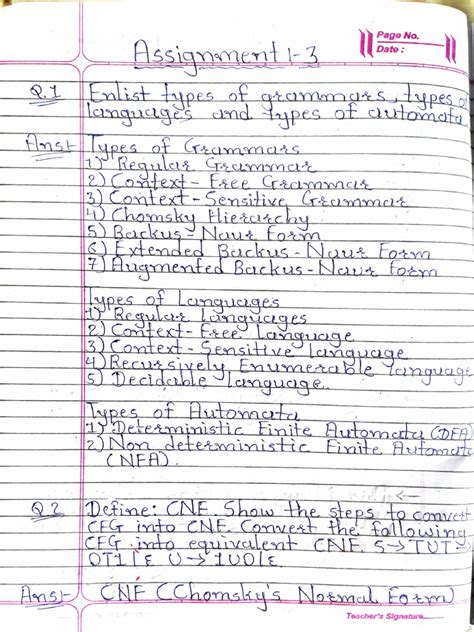 Page No.
Date :
Assignment 1-3
Q.1 Enlist types of grammars, types of
languages and types of automata
Ans:- Types of Grammars
1) Regular Grammar
2) Context - Free Grammar
3) Context - Sensitive Grammar
4) Chomsky Hierarchy
5) Backus - Naur Form
6) Extended Backus - Naur Form
7) Augmented Backus - Naur Form
Types of Languages
1) Regular Languages
2) Context - Free Language
3) Context - Sensitive Language
4) Recursively Enumerable Language
5) Decidable Language.
Types of Automata
1) Deterministic Finite Automata (DFA)
2) Non deterministic Finite Automata
(NFA).
Q.2 Define: CNF. Show the steps to convert
CFG into CNF. Convert the following
CFG into equivalent CNF. S→TUT
0T1|ε U→1U0|ε
Ans:- CNF (Chomsky's Normal Form)
Teacher's Signature